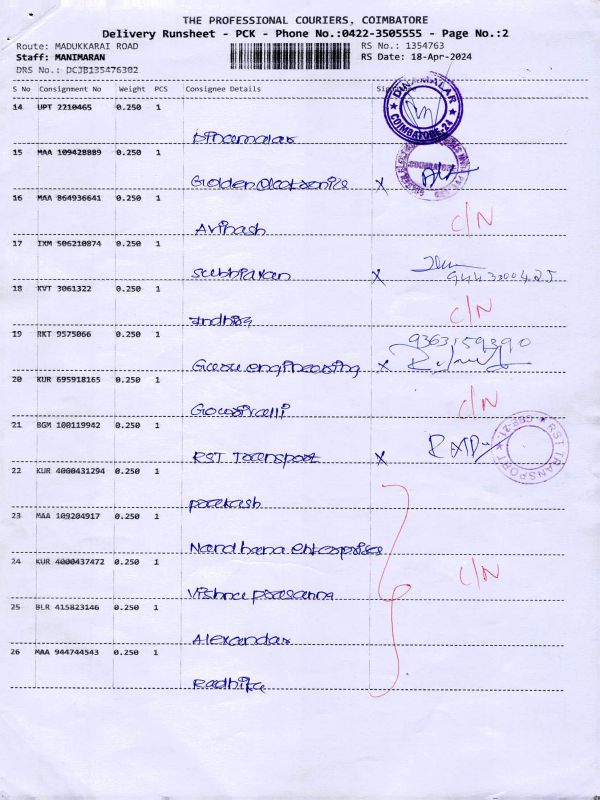 THE PROFESSIONAL COURIERS, COIMBATORE
Delivery Runsheet - PCK - Phone No.:0422-3505555 - Page No.:2
Route: MADUKKARAI ROAD RS No.: 1354763
Staff: MANIMARAN RS Date: 18-Apr-2024
DRS No.: DCJB135476302
S No Consignment No Weight PCS Consignee Details
14 UPT 2210465 0.250 1
DINAMALAR COIMBATORE-24
Dinamalar
15 MAA 109428889 0.250 1
COIMBATORE
Golden electronics x
16 MAA 864936641 0.250 1
Avinash C/N
17 IXM 506210874 0.250 1
Subbiaran x
18 KVT 3061322 0.250 1
Indhira C/N
19 RKT 9575066 0.250 1
9363159390
Guru engineering x
20 KUR 695918165 0.250 1
C/N
21 BGM 100119942 0.250 1
RST TRANSPORT
RST Transport x
22 KUR 4000431294 0.250 1
prakash
23 MAA 109204917 0.250 1
Nandhana enterprises
24 KUR 4000437472 0.250 1
Vishnu prasanna C/N
25 BLR 415823146 0.250 1
Alexandar
26 MAA 944744543 0.250 1
Radhika